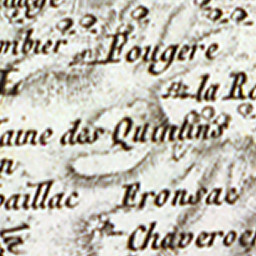 mbier Fougere
la Ro
aine des Quintins
n
baillac Fronsac
Chaveroch